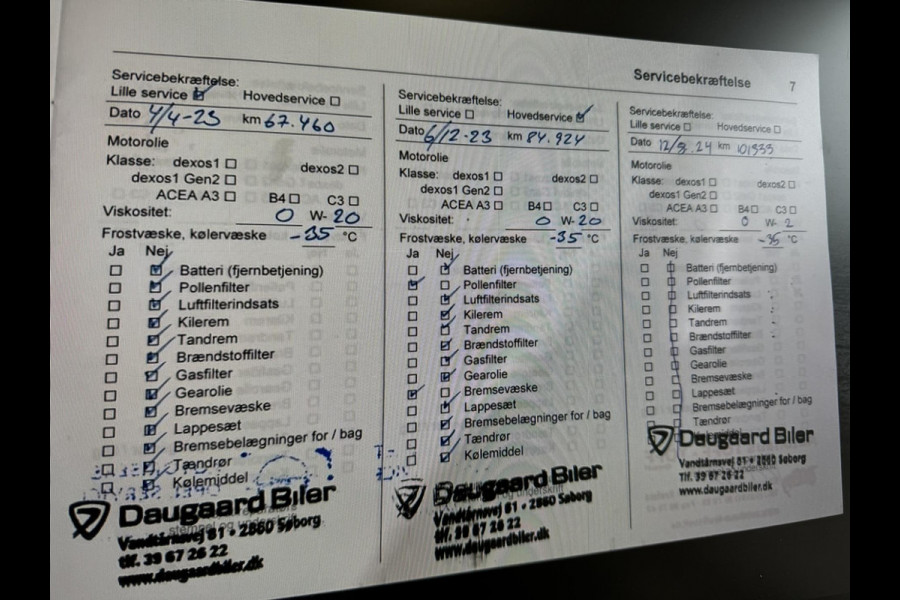 Servicebekræftelse 7
Servicebekræftelse:
Lille service ☑ Hovedservice ☐
Dato 4/4-23 km 67.460
Motorolie
Klasse: dexos1 ☐ dexos2 ☐
dexos1 Gen2 ☐
ACEA A3 ☐ B4 ☐ C3 ☐
Viskositet: 0 W-20
Frostvæske, kølervæske -35 °C
Ja Nej
☐ ☑ Batteri (fjernbetjening)
☐ ☑ Pollenfilter
☐ ☑ Luftfilterindsats
☐ ☑ Kilerem
☐ ☑ Tandrem
☐ ☑ Brændstoffilter
☐ ☑ Gasfilter
☐ ☑ Gearolie
☐ ☑ Bremsevæske
☐ ☑ Lappesæt
☐ ☑ Bremsebelægninger for / bag
☐ ☑ Tændrør
☐ ☑ Kølemiddel
Daugaard Biler
Vandtårnsvej 61 • 2860 Søborg
tlf. 39 67 26 22
www.daugaardbiler.dk
Servicebekræftelse:
Lille service ☐ Hovedservice ☑
Dato 6/12-23 km 84.924
Motorolie
Klasse: dexos1 ☐ dexos2 ☐
dexos1 Gen2 ☐
ACEA A3 ☐ B4 ☐ C3 ☐
Viskositet: 0 W-20
Frostvæske, kølervæske -35 °C
Ja Nej
☐ ☑ Batteri (fjernbetjening)
☑ ☐ Pollenfilter
☐ ☑ Luftfilterindsats
☐ ☑ Kilerem
☐ ☑ Tandrem
☐ ☑ Brændstoffilter
☐ ☑ Gasfilter
☐ ☑ Gearolie
☑ ☐ Bremsevæske
☐ ☑ Lappesæt
☐ ☑ Bremsebelægninger for / bag
☐ ☑ Tændrør
☐ ☑ Kølemiddel
Daugaard Biler
Vandtårnsvej 61 • 2860 Søborg
tlf. 39 67 26 22
www.daugaardbiler.dk
Servicebekræftelse:
Lille service ☐ Hovedservice ☐
Dato 24 km
Motorolie
Klasse: dexos1 ☐ dexos2 ☐
dexos1 Gen2 ☐
ACEA A3 ☐ B4 ☐ C3 ☐
Viskositet: 0 W-2
Frostvæske, kølervæske -35 °C
Ja Nej
☐ ☐ Batteri (fjernbetjening)
☐ ☐ Pollenfilter
☐ ☐ Luftfilterindsats
☐ ☐ Kilerem
☐ ☐ Tandrem
☐ ☐ Brændstoffilter
☐ ☐ Gasfilter
☐ ☐ Gearolie
☐ ☐ Bremsevæske
☐ ☐ Lappesæt
☐ ☐ Bremsebelægninger for / bag
☐ ☐ Tændrør
Daugaard Biler
Vandtårnsvej 61 • 2860 Søborg
tlf. 39 67 26 22
www.daugaardbiler.dk